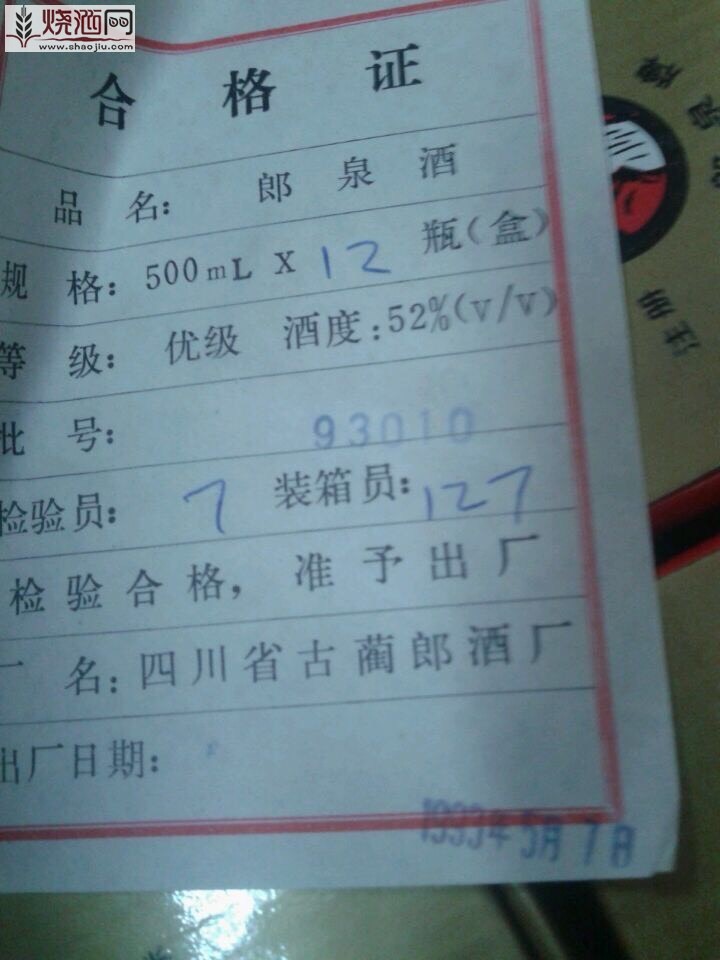 烧酒网
www.shaojiu.com
合格证
品名：郎泉酒
规格：500mL X 12 瓶（盒）
等级：优级 酒度：52%(v/v)
批号：93010
检验员：7 装箱员：127
检验合格，准予出厂
厂名：四川省古蔺郎酒厂
出厂日期：
1993年5月7日
注册